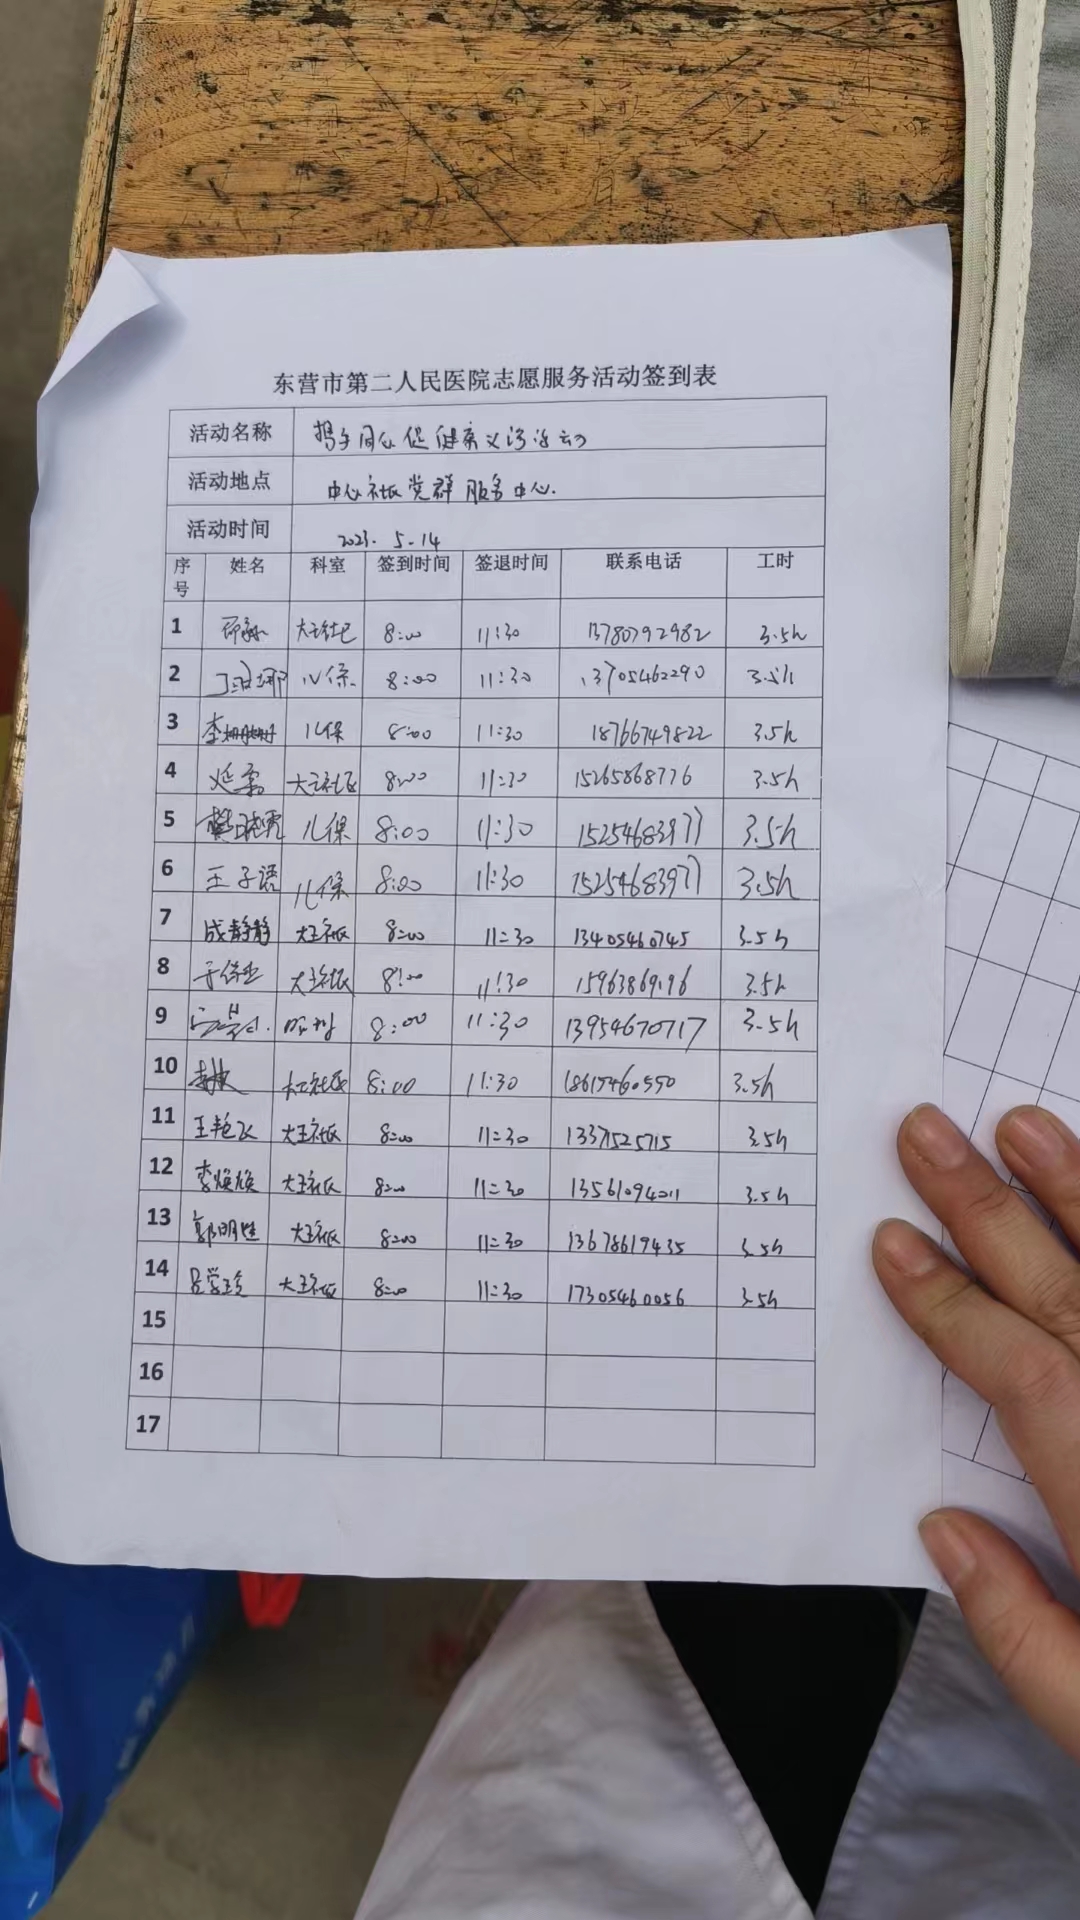 东营市第二人民医院志愿服务活动签到表
活动名称 携手同心促健康义诊活动
活动地点 中心社区党群服务中心.
活动时间 2023. 5.14
序号 姓名 科室 签到时间 签退时间 联系电话 工时
1 大王社区 8:00 11:30 13780792982 3.5h
2 儿保 8:00 11:30 13705462290 3.5h
3 李姗姗 儿保 8:00 11:30 18766749822 3.5h
4 延 大王社区 8:00 11:30 15265868776 3.5h
5 晓霞 儿保 8:00 11:30 15254683977 3.5h
6 王子语 儿保 8:00 11:30 15254683977 3.5h
7 成静静 大王社区 8:00 11:30 13405460745 3.5h
8 于保业 大王社区 8:00 11:30 15963869196 3.5h
9 8:00 11:30 13954670717 3.5h
10 大王社区 8:00 11:30 18615460550 3.5h
11 王艳飞 大王社区 8:00 11:30 1337525715 3.5h
12 李焕焕 大王社区 8:00 11:30 13561094011 3.5h
13 郭明胜 大王社区 8:00 11:30 13678619435 3.5h
14 吕学玉 大王社区 8:00 11:30 17305460056 3.5h
15
16
17